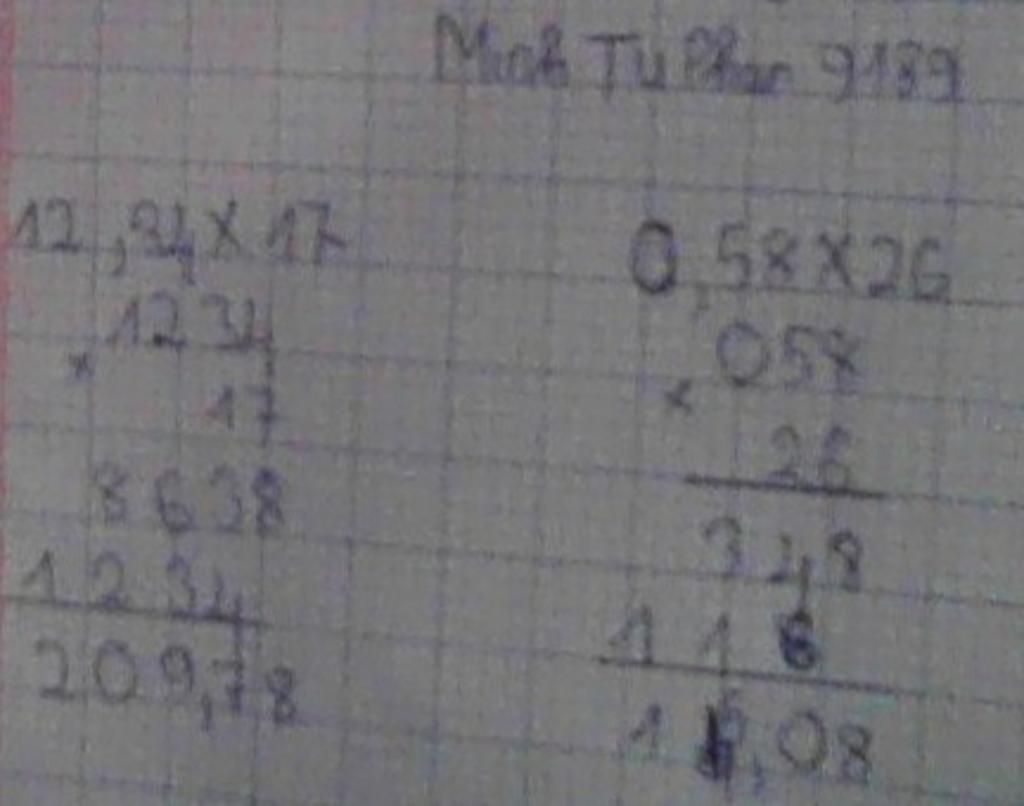 Minh Tu Phan 9A39
12,34 x 17
1234
x
17
8638
1234
209,78
0,58 x 26
058
x
26
348
116
15,08